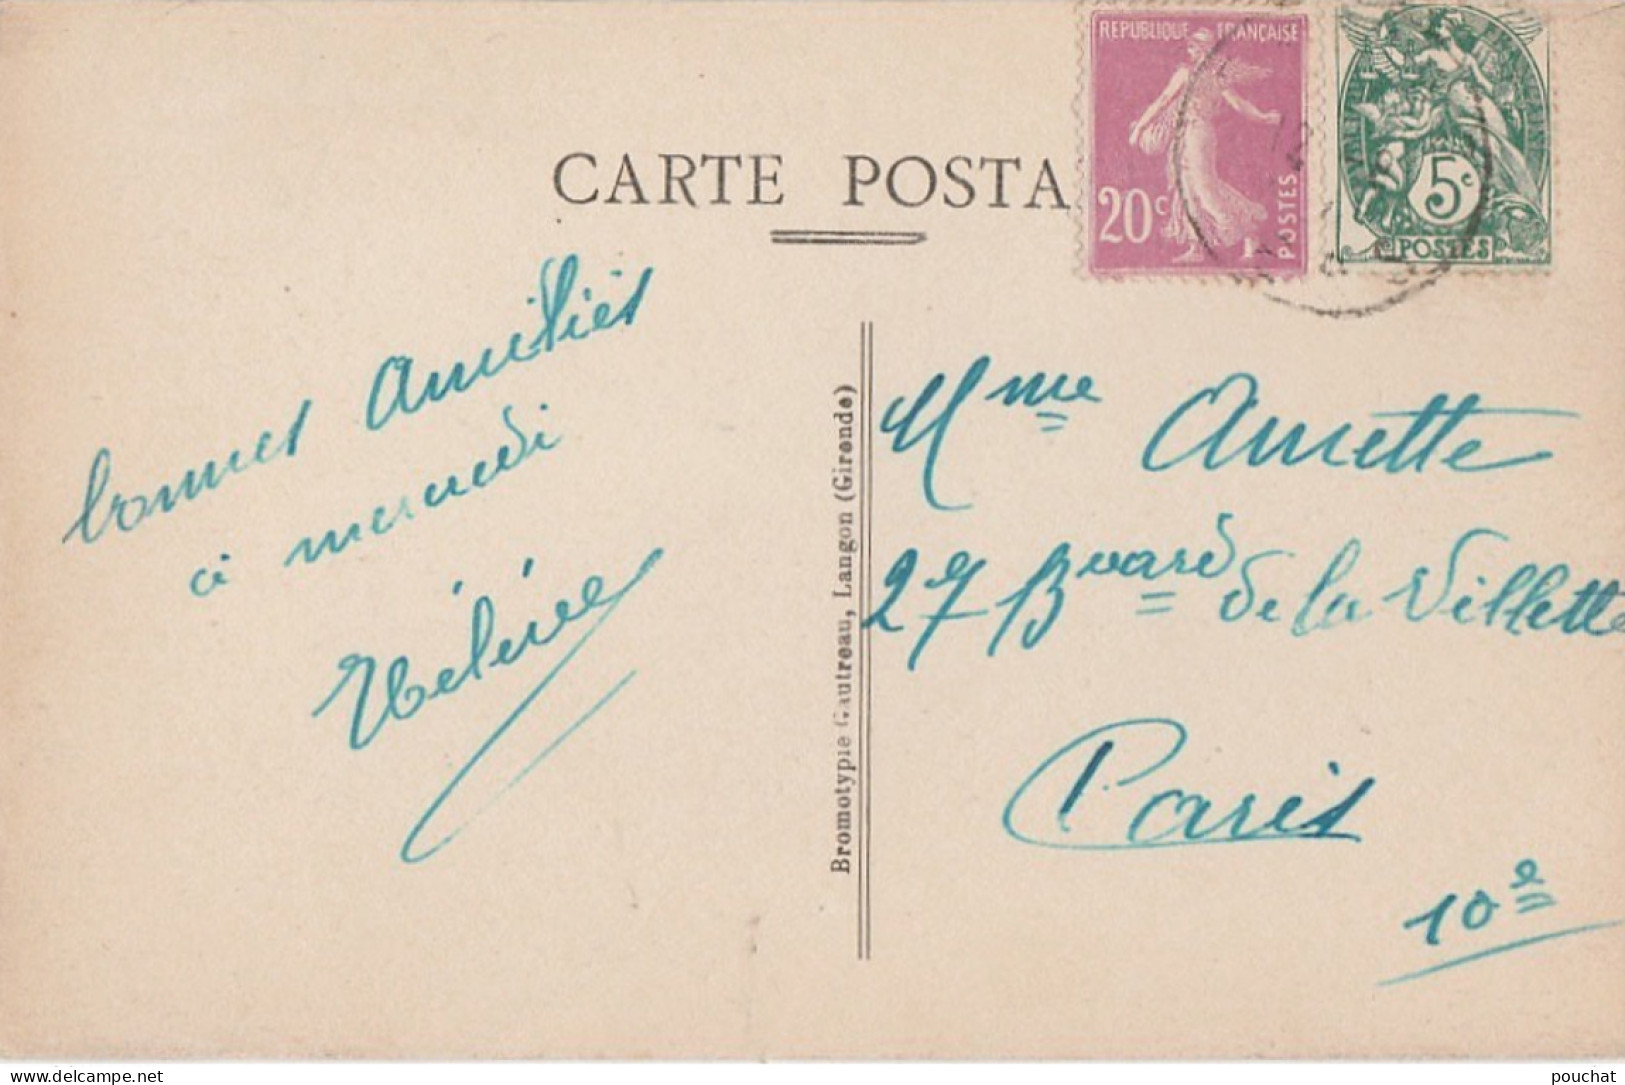 CARTE POSTA
REPUBLIQUE FRANÇAISE
20c
POSTES
5c
POSTES
bonnes Amitiés
à mercredi
Hélène
Bromotypie Gautreau, Langon (Gironde)
Mme Amette
27 Bvard de la Villette
Paris
10e
www.delcampe.net
pouchat